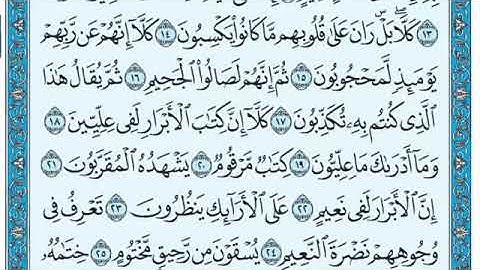 ١٣ كَلَّا بَلْ رَانَ عَلَىٰ قُلُوبِهِم مَّا كَانُوا يَكْسِبُونَ ١٤ كَلَّا إِنَّهُمْ عَن رَّبِّهِمْ
يَوْمَئِذٍ لَّمَحْجُوبُونَ ١٥ ثُمَّ إِنَّهُمْ لَصَالُوا الْجَحِيمِ ١٦ ثُمَّ يُقَالُ هَٰذَا
الَّذِي كُنتُم بِهِ تُكَذِّبُونَ ١٧ كَلَّا إِنَّ كِتَابَ الْأَبْرَارِ لَفِي عِلِّيِّينَ ١٨
وَمَا أَدْرَاكَ مَا عِلِّيُّونَ ١٩ كِتَابٌ مَّرْقُومٌ ٢٠ يَشْهَدُهُ الْمُقَرَّبُونَ ٢١
إِنَّ الْأَبْرَارَ لَفِي نَعِيمٍ ٢٢ عَلَى الْأَرَائِكِ يَنظُرُونَ ٢٣ تَعْرِفُ فِي
وُجُوهِهِمْ نَضْرَةَ النَّعِيمِ ٢٤ يُسْقَوْنَ مِن رَّحِيقٍ مَّخْتُومٍ ٢٥ خِتَامُهُ